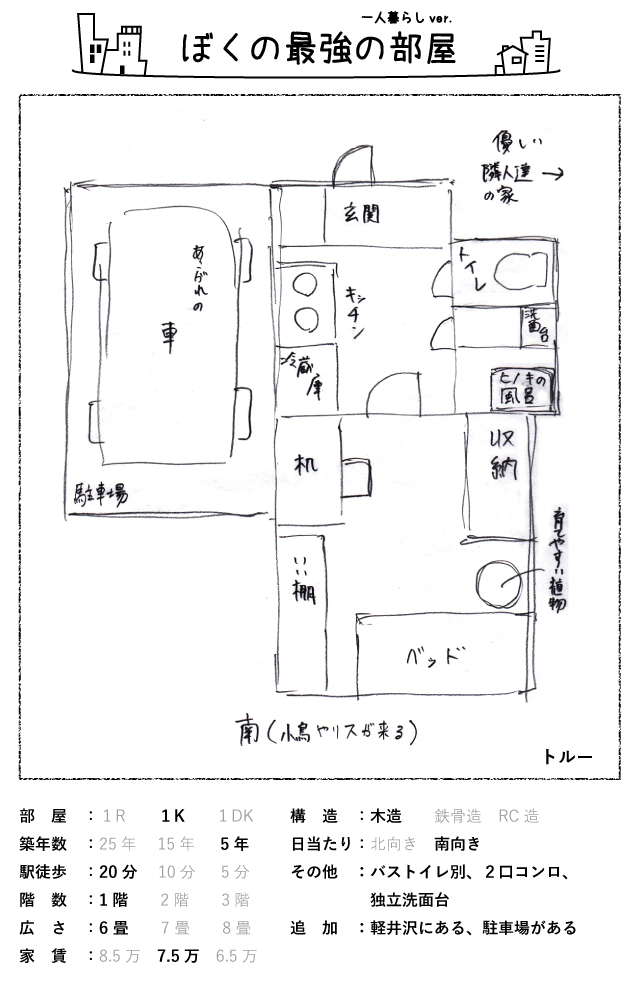 一人暮らし ver.
ぼくの最強の部屋
優しい
隣人達 →
の家
玄関
トイレ
あこがれの
車
キッチン
洗面台
冷蔵庫
ヒノキの
風呂
机
収納
駐車場
育てやすい植物
いい棚
ベッド
南(小鳥やリスが来る)
トルー
部 屋 : 1R 1K 1DK
構 造 : 木造 鉄骨造 RC造
築年数 : 25年 15年 5年
日当たり : 北向き 南向き
駅徒歩 : 20分 10分 5分
その他 : バストイレ別、2口コンロ、
階 数 : 1階 2階 3階
独立洗面台
広 さ : 6畳 7畳 8畳
追 加 : 軽井沢にある、駐車場がある
家 賃 : 8.5万 7.5万 6.5万